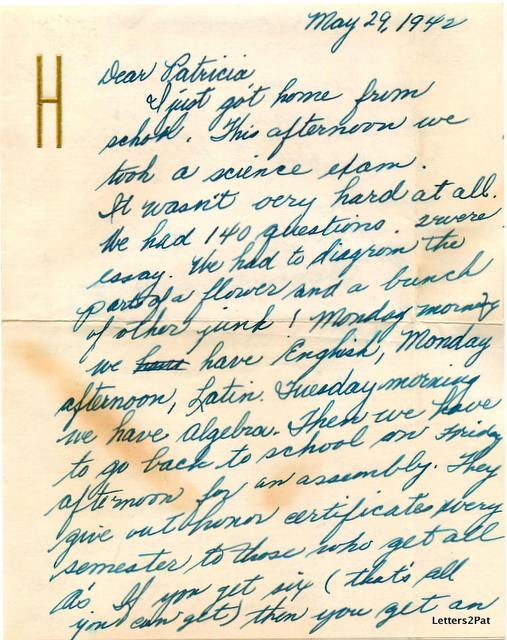 May 29, 1942
H
Dear Patricia,
I just got home from
school. This afternoon we
took a science exam.
It wasn't very hard at all.
We had 140 questions. 2 were
essay. We had to diagram the
parts of a flower and a bunch
of other junk! Monday morning
we have English, Monday
afternoon, Latin. Tuesday morning
we have algebra. Then we have
to go back to school on Friday
afternoon for an assembly. They
give out honor certificates every
semester to those who get all
A's. If you get six (that's all
you can get) then you get an
Letters2Pat